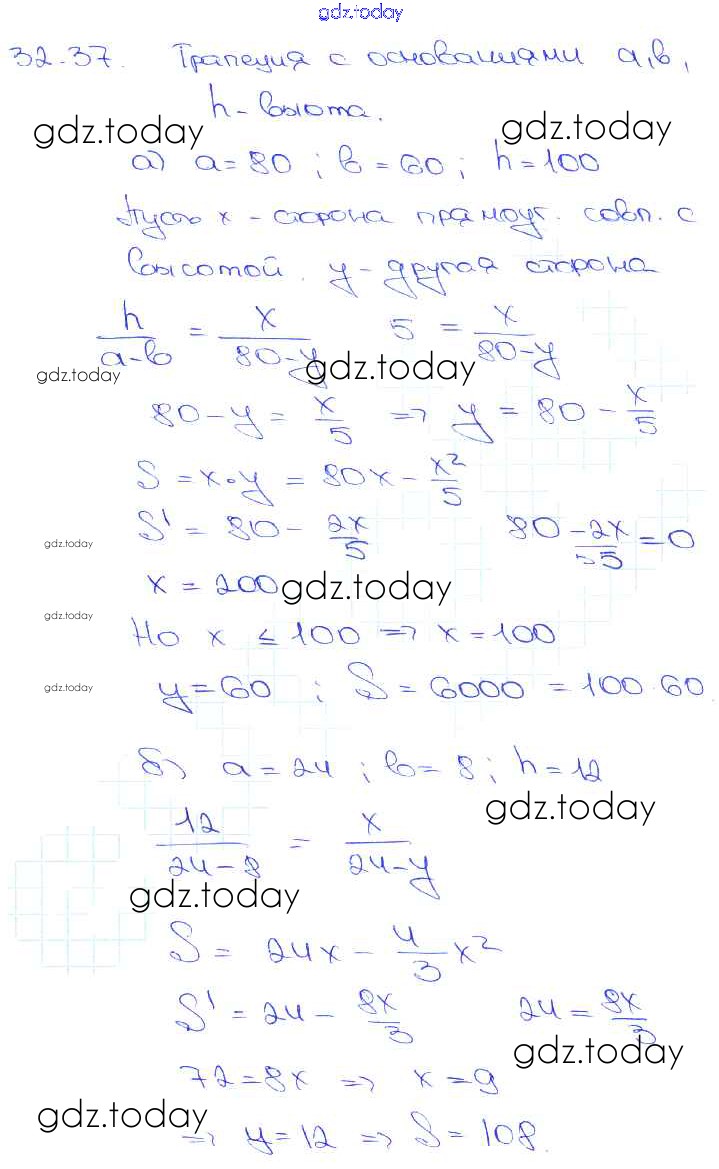 gdz.today
32.37. Трапеция с основаниями a, b,
h - высота.
gdz.today gdz.today
а) a = 80 ; b = 60 ; h = 100
Пусть x - сторона прямоуг. совп. с
высотой. y - другая сторона
h/(a-b) = x/(80-y) 5 = x/(80-y)
gdz.today gdz.today
80 - y = x/5 => y = 80 - x/5
S = x·y = 80x - x²/5
S' = 80 - 2x/5 80 - 2x/5 = 0
gdz.today
x = 200 gdz.today
gdz.today
Но x ≤ 100 => x = 100
gdz.today
y = 60 ; S = 6000 = 100·60.
б) a = 24 ; b = 8 ; h = 12
gdz.today
12/(24-8) = x/(24-y)
gdz.today
S = 24x - 4/3 x²
S' = 24 - 8x/3 24 = 8x/3
gdz.today
72 = 8x => x = 9
gdz.today
=> y = 12 => S = 108.